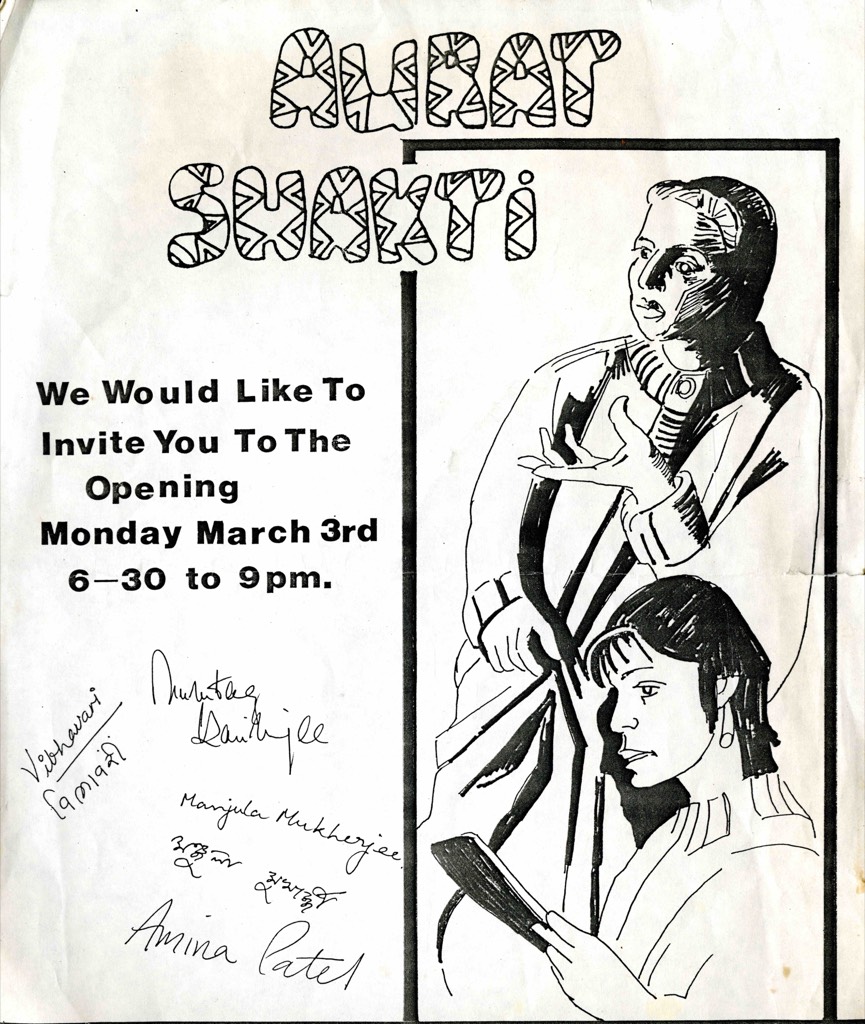 AURAT
SHAKTi
We Would Like To
Invite You To The
Opening
Monday March 3rd
6—30 to 9pm.
Mumtaz
Karimjee
Vibhavari
विभावरी
Manjula Mukherjee
Amina Patel